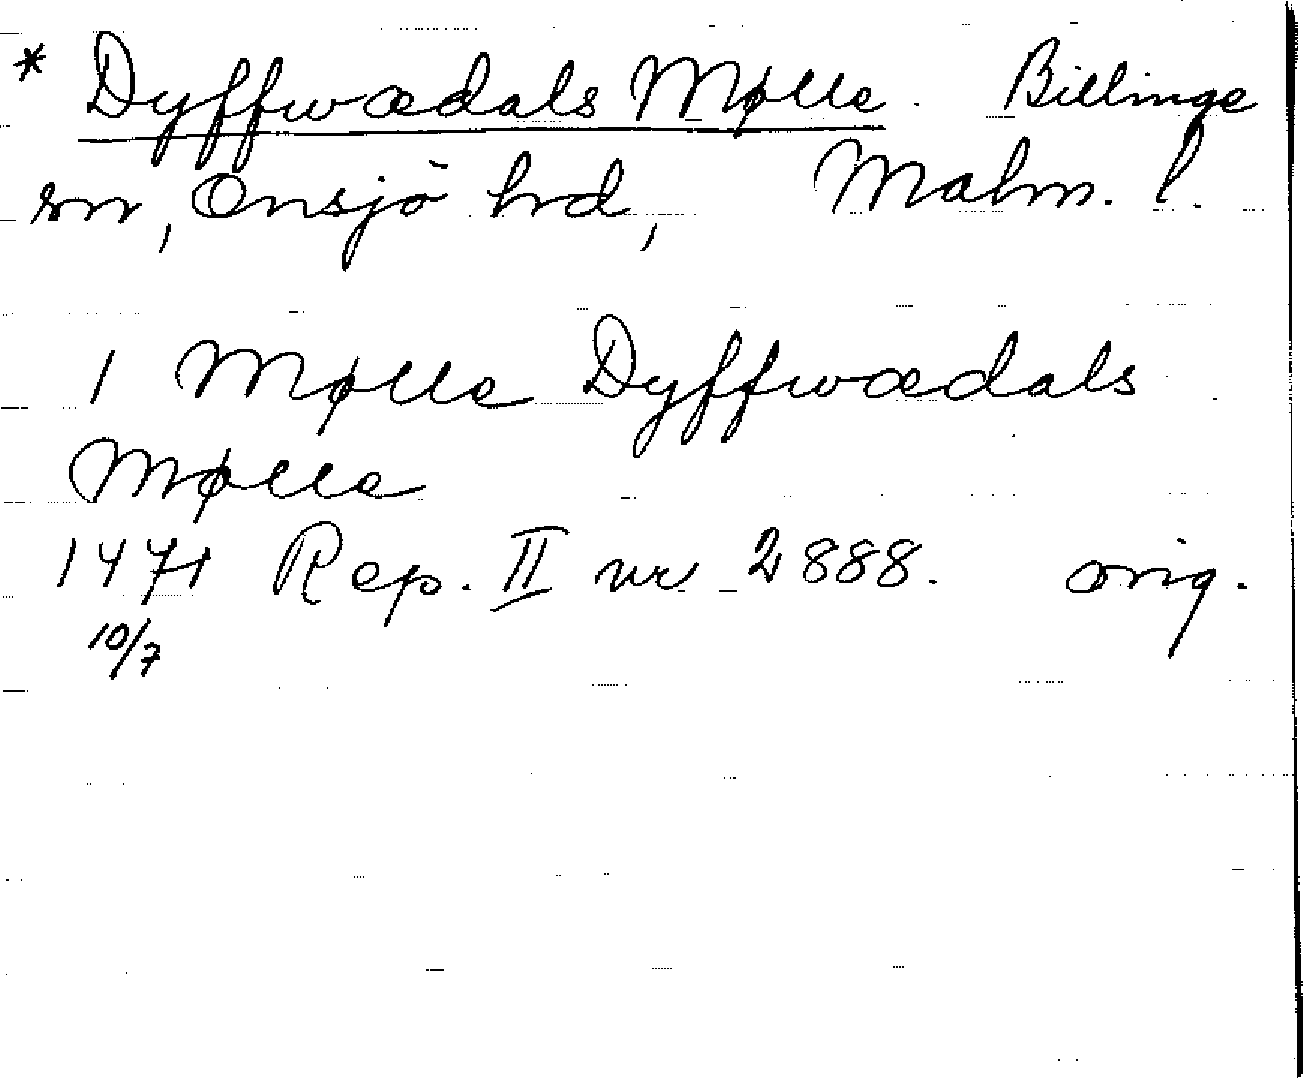 * Dyffwædals Mølle. Billinge
sn, Onsjö hrd, Malm. l.
1 Mølle Dyffwædals
Mølle
1471 Rep. II nr 2888. orig.
10/7